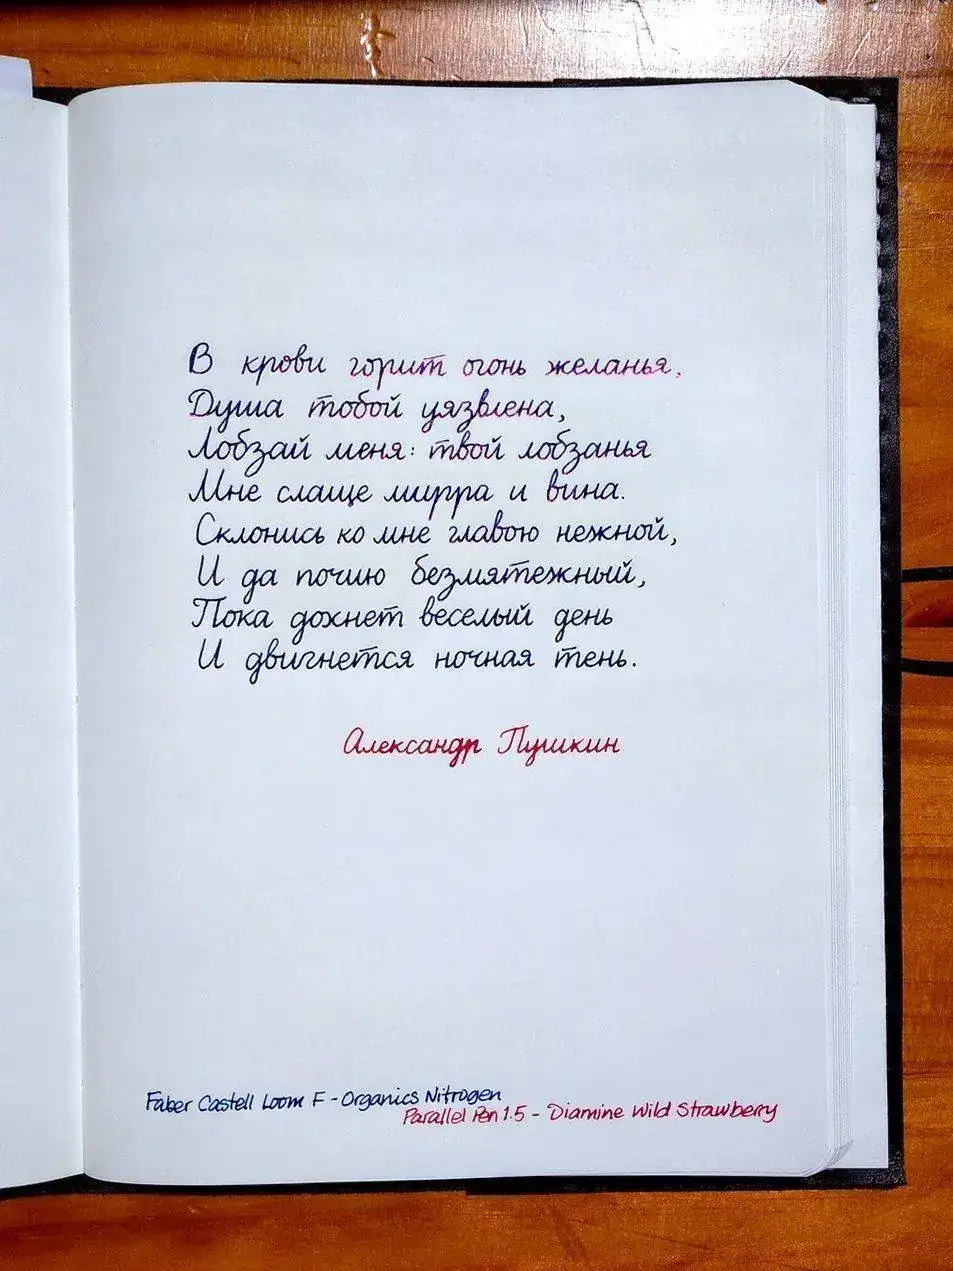 В крови горит огонь желанья,
Душа тобой уязвлена,
Лобзай меня: твой лобзанья
Мне слаще мирра и вина.
Склонись ко мне главою нежной,
И да почию безмятежный,
Пока дохнет веселый день
И двигнется ночная тень.
Александр Пушкин
Faber Castell Loom F - Organics Nitrogen
Parallel Pen 1.5 - Diamine Wild Strawberry